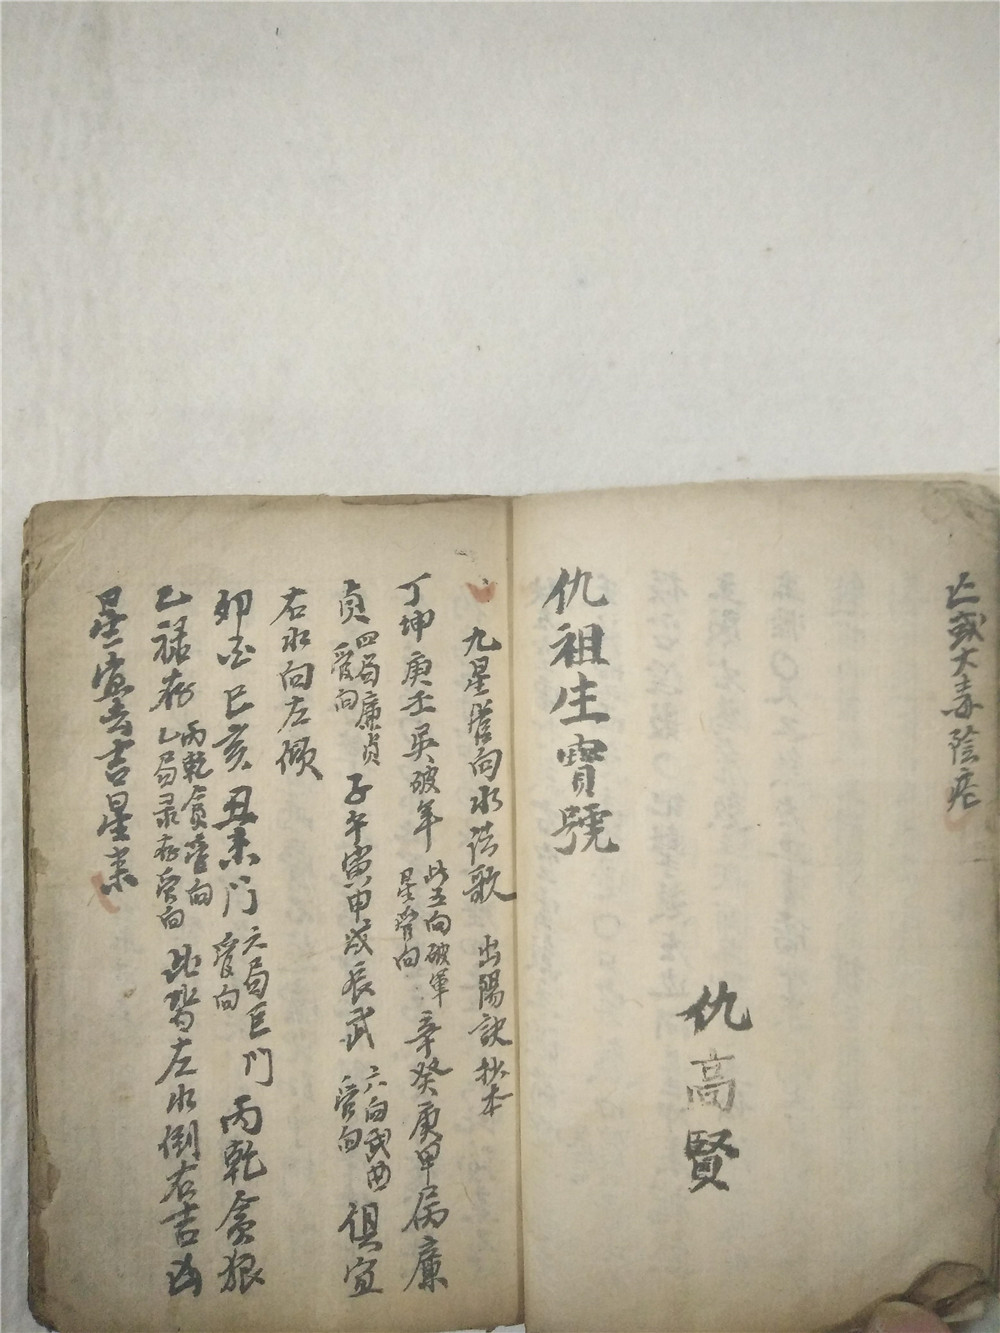 亡或大毒陰症
仇高賢
仇祖生寶號
九星管向水法歌 出陽訣抄本
丁坤庚壬吳破年 此五向破軍星管向 辛癸庚甲局廉
貞 四局廉貞管向 子午寅甲戌辰武 六向武曲管向 俱宜
右水向左傾
卯酉巳亥丑未門 六局巨门管向 丙乾貪狼
乙禄存 丙乾貪管向 乙局录存管向 此皆左水倒右吉凶
星宜去吉星来